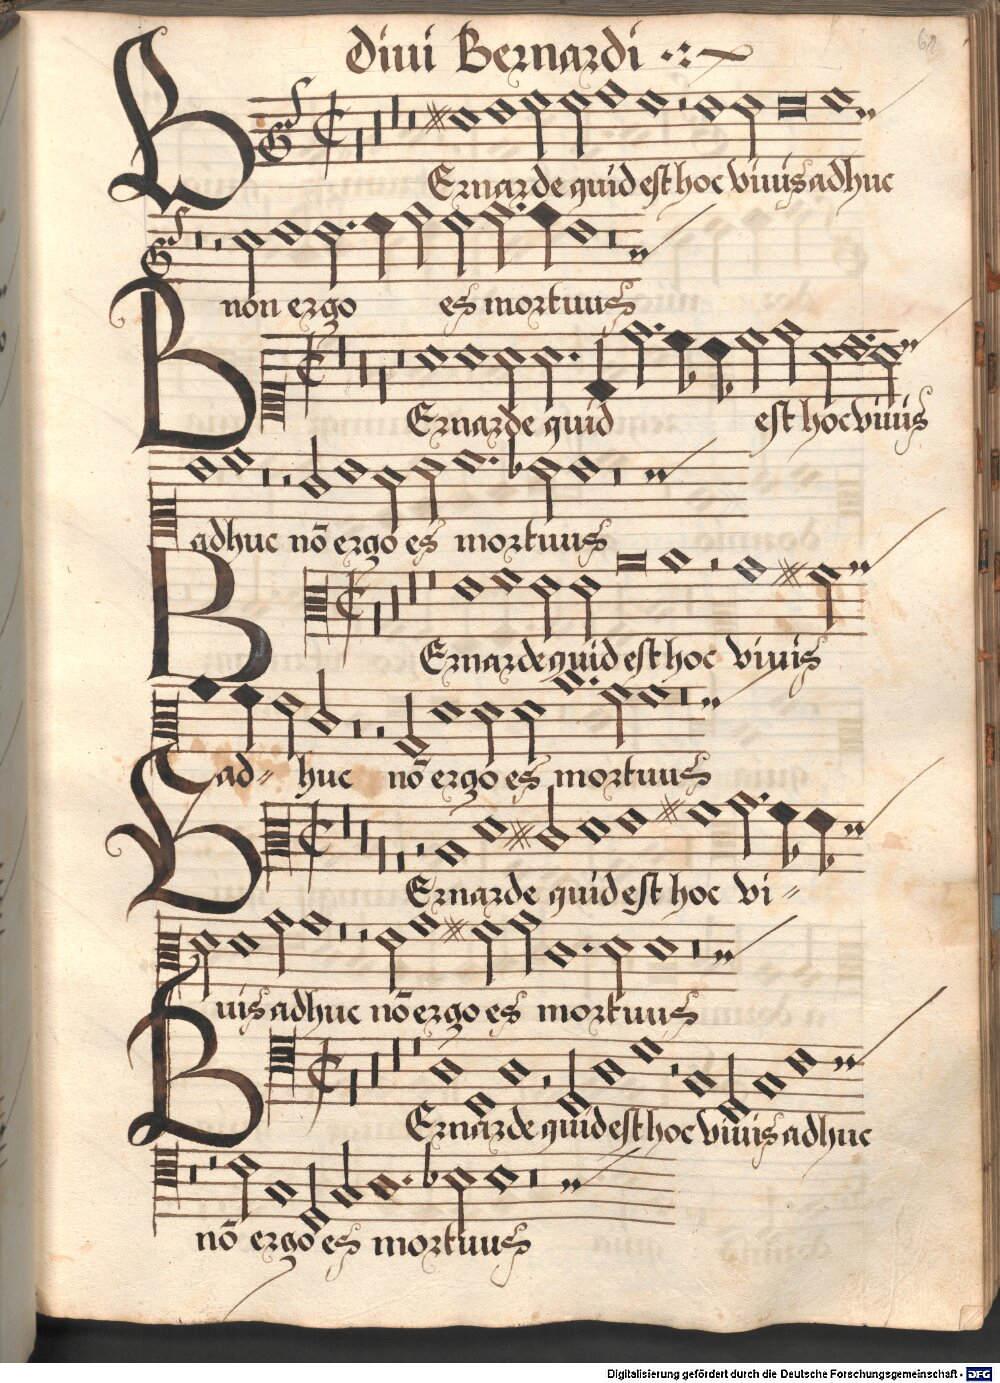 Diui Bernardi
62
BErnarde quid est hoc viuis adhuc
non ergo es mortuus
BErnarde quid est hoc viuis
adhuc nõ ergo es mortuus
BErnarde quid est hoc viuis
ad= huc nõ ergo es mortuus
BErnarde quid est hoc vi=
uis adhuc nõ ergo es mortuus
BErnarde quid est hoc viuis adhuc
nõ ergo es mortuus
Digitalisierung gefördert durch die Deutsche Forschungsgemeinschaft - DFG